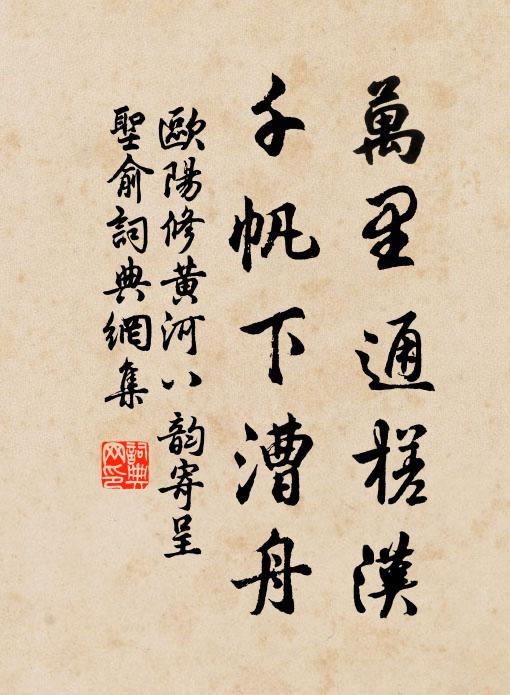 萬里通槎漢
千帆下漕舟
歐陽修黃河八韵寄呈
聖俞詞典網集
詞典
网印